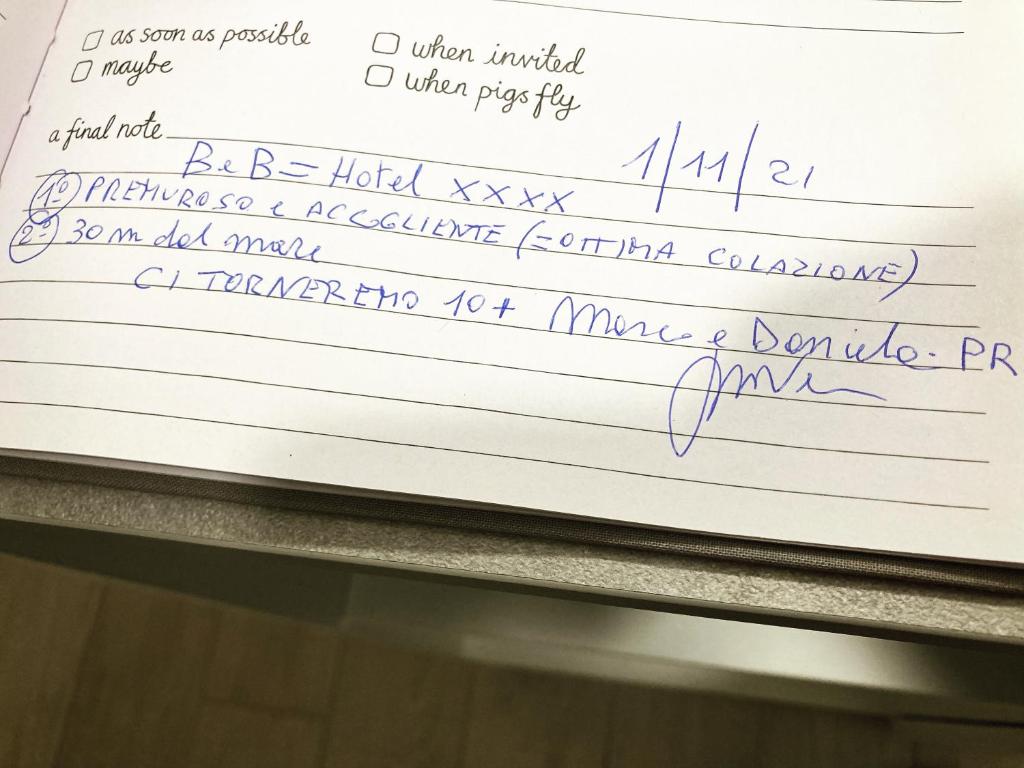 as soon as possible
when invited
maybe
when pigs fly
a final note
1/11/21
B e B = Hotel XXXX
1º PREMUROSO e ACCOGLIENTE (= OTTIMA COLAZIONE)
2º 30 m dal mare
CI TORNEREMO 10+ Marco e Daniela - PR